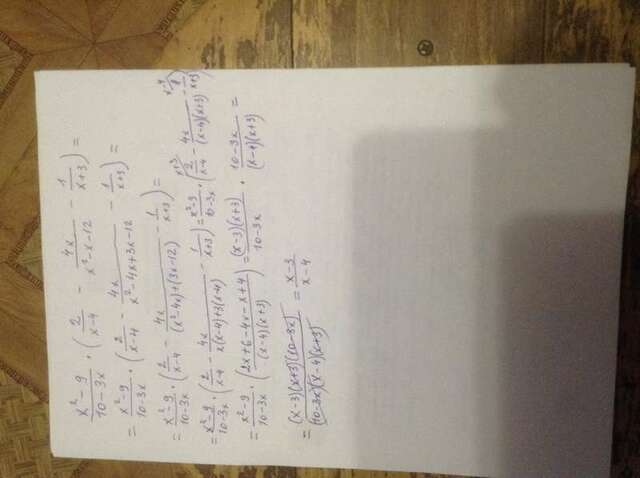 (x²-9)/(10-3x) · (2/(x-4) - 4x/(x²-x-12) - 1/(x+3)) =
= (x²-9)/(10-3x) · (2/(x-4) - 4x/(x²-4x+3x-12) - 1/(x+3)) =
= (x²-9)/(10-3x) · (2/(x-4) - 4x/((x²-4x)+(3x-12)) - 1/(x+3)) =
= (x²-9)/(10-3x) · (2/(x-4) - 4x/(x(x-4)+3(x-4)) - 1/(x+3)) = (x²-9)/(10-3x) · (2^{x+3}/(x-4) - 4x/((x-4)(x+3)) - 1^{x-4}/(x+3))
= (x²-9)/(10-3x) · ((2x+6-4x-x+4)/((x-4)(x+3))) = ((x-3)(x+3))/(10-3x) · (10-3x)/((x-4)(x+3)) =
= ((x-3)(x+3)(10-3x))/((10-3x)(x-4)(x+3)) = (x-3)/(x-4)